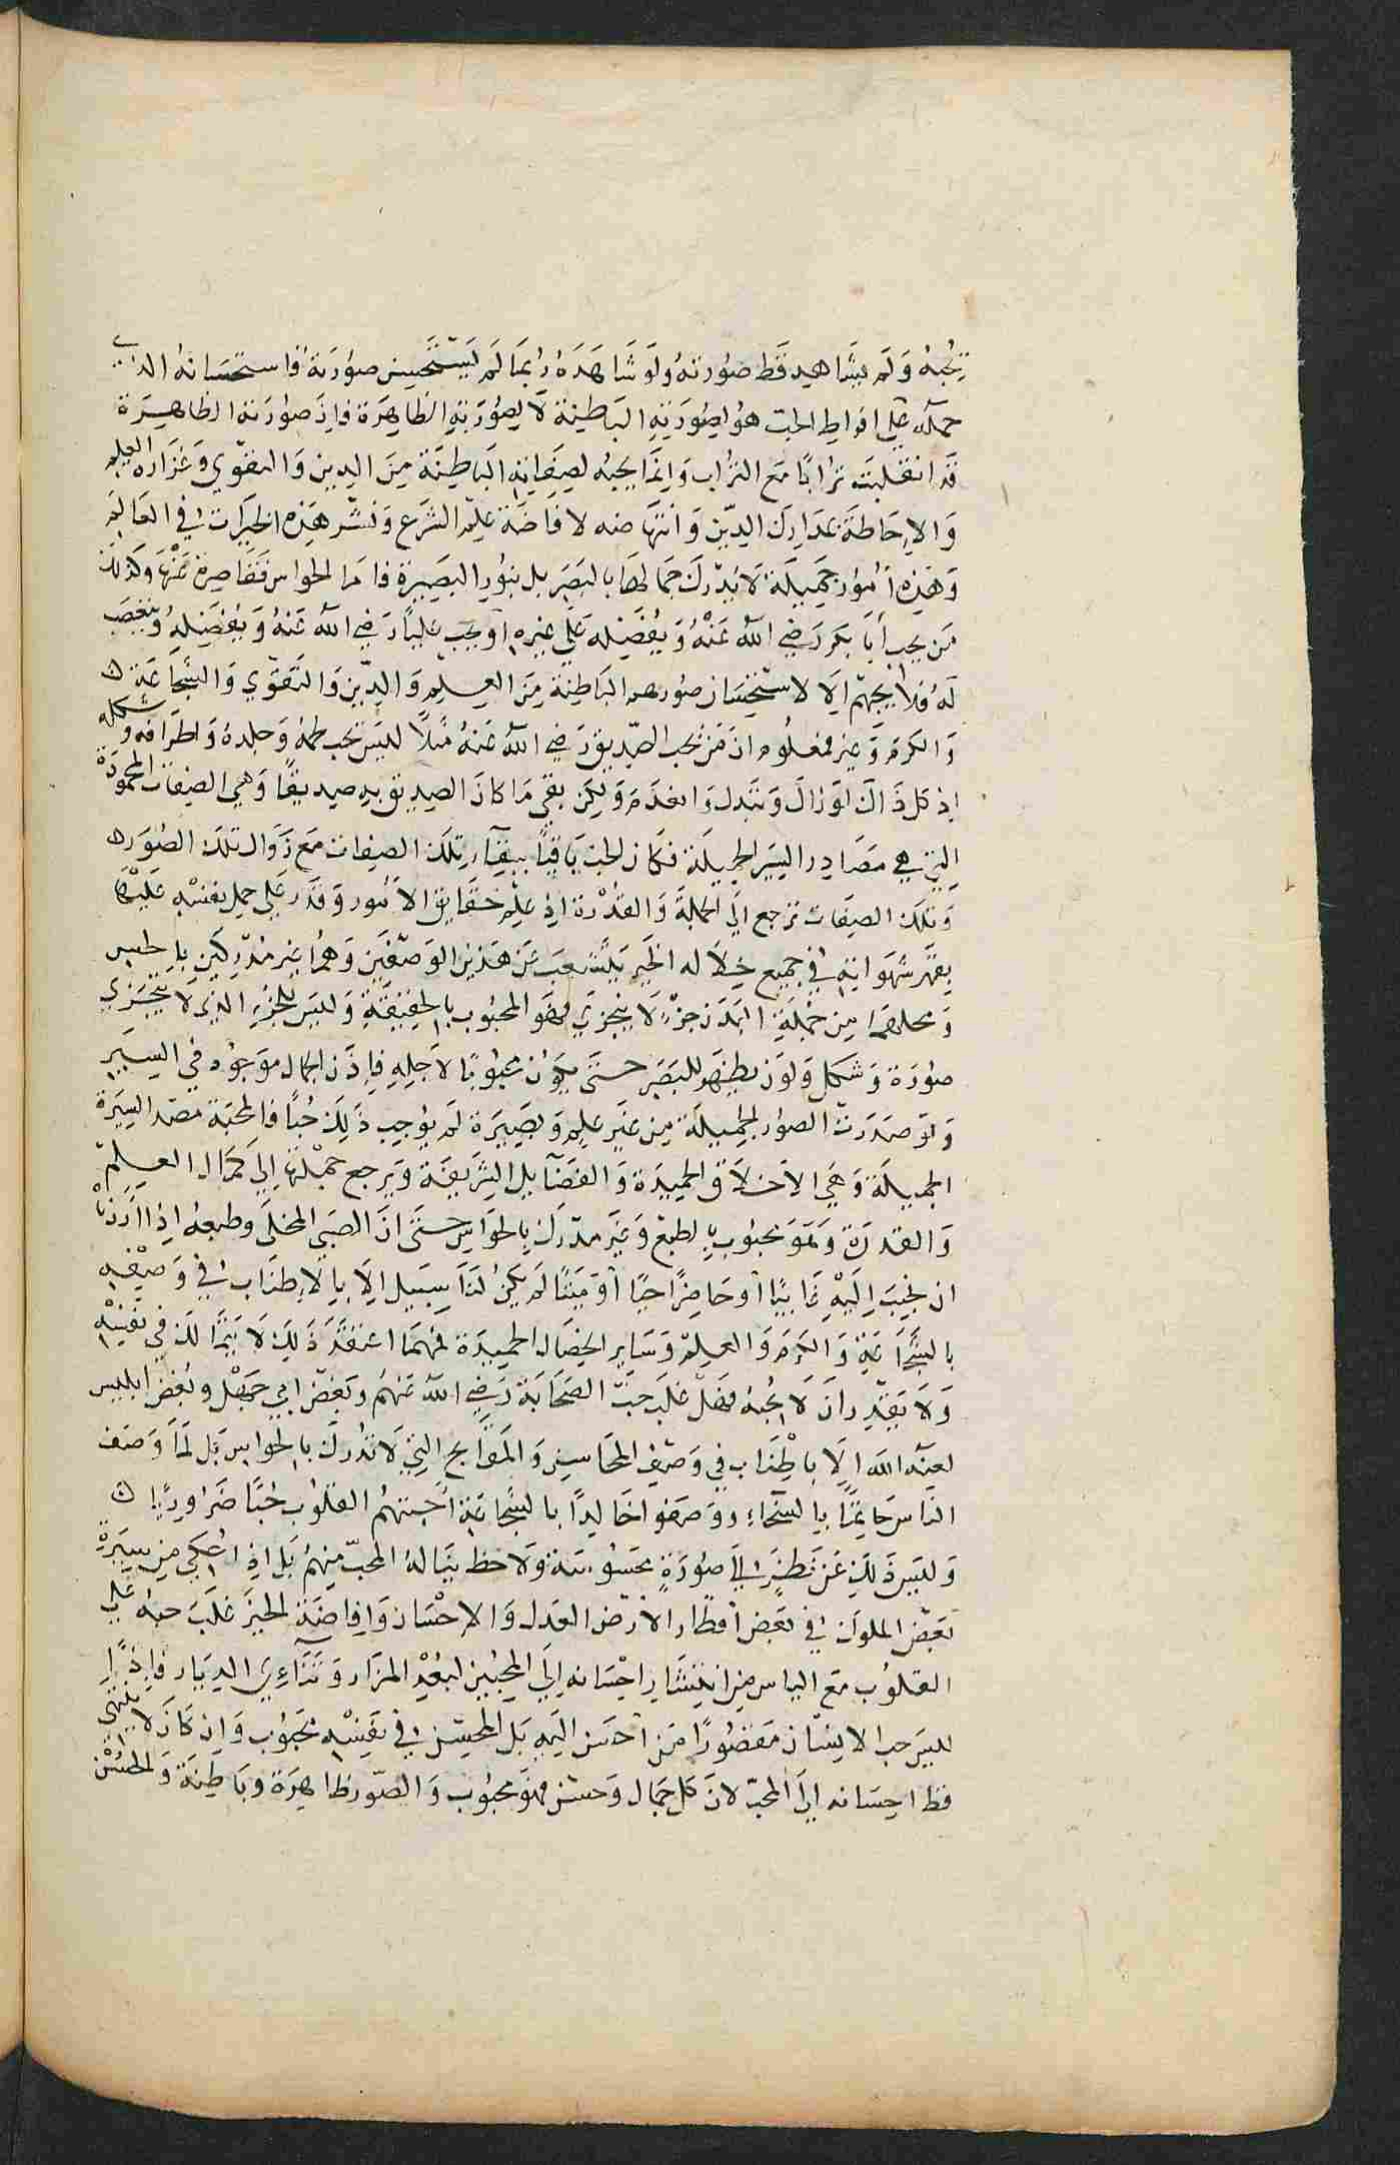 يحبه ولم يشاهد قط صورته ولو شاهده ربما لم يستحسن صورته فاستحسانه الذي
حمله على افراط الحب هو لصورته الباطنة لا لصورته الظاهرة فان صورته الظاهرة
قد انقلبت ترابا مع التراب وانما يحبه لصفاته الباطنة من الدين والتقوي وغزارة العلم
والاحاطة بمدارك الدين وانتهاضه لافاضة علم الشرع ونشر هذه الخيرات في العالم
وهذه امور جميلة لا يدرك جمالها بالبصر بل بنور البصيرة فاما الحواس فقاصرة عنها وكذلك
من يحب ابا بكر رضي الله عنه ويفضله على غيره او يحب عليا رضي الله عنه ويفضله ويتعصب
له فلا يحبهم الا لاستحسان صورهم الباطنة من العلم والدين والتقوي والشجاعة
والكرم وغيره فمعلوم ان من يحب الصديق رضي الله عنه مثلا ليس يحب لحمه وجلده واطرافه وشكله
اذ كل ذالك لو زال وتبدل وانعدم ولكن بقي ما كان الصديق به صديقا وهي الصفات المحمودة
التي هي مصادر السير الجميلة فكان الحب باقيا ببقاء تلك الصفات مع زوال تلك الصور
وتلك الصفات ترجع الى الجملة والقدرة اذ علم حقايق الامور وقدر على حمل نفسه عليها
بقهر شهواته في جميع خلاله الخير يتشعب عن هذين الوصفين وهما غير مدركين بالحس
ومحلهما من جملة البدن جزء لا يتجزي فهو المحبوب بالحقيقة وليس للجزء الذي لا يتجزي
صورة وشكل ولون يظهر للبصر حتى يكون محبوبا لاجله فاذن الجمال موجود في السير
ولو صدرت الصور الجميلة من غير علم وبصيرة لم يوجب ذلك حبا فالمحبة مصدر السيرة
الجميلة وهي الاخلاق الحميدة والفضآيل الشريفة ويرجع جملتها الى كمال العلم
والقدرة وهو محبوب بالطبع وغير مدرك بالحواس حتى ان الصبي المخلى وطبعه اذا اردنا
ان نحبب اليه غايبا او حاضرا حيا او ميتا لم يكن لنا سبيل الا بالاطناب في وصفه
بالشجاعة والكرم والعلم وساير الخصال الحميدة فمهما اعتقد ذلك لا يتمالك في نفسه
ولا يقدر ان لا يحبه فهل غلب حب الصحابة رضي الله عنهم وبغض ابي جهل وبغض ابليس
لعنه الله الا باطناب في وصف المحاسن والمقابح التي لا تدرك بالحواس بل لما وصف
الناس حاتما بالسخاء ووصفوا خالدا بالشجاعة احبتهم القلوب حبا ضروريا
وليس ذلك عن نظر الى صورة محسوسة ولا حظ يناله المحب منهم بل اذا حكي من سيرة
بعض الملوك في بعض اقطار الارض العدل والاحسان وافاضة الخير غلب حبه على
القلوب مع الياس من انتشار احسانه الى المحبين لبعد المزار وتنآءي الديار فاذا
ليس حب الانسان مقصورا من احسن اليه بل المحسن في نفسه محبوب وان كان لا ينتهي
قط احسانه الى المحب لان كل جمال وحسن فهو محبوب والصور ظاهرة وباطنة والحسن